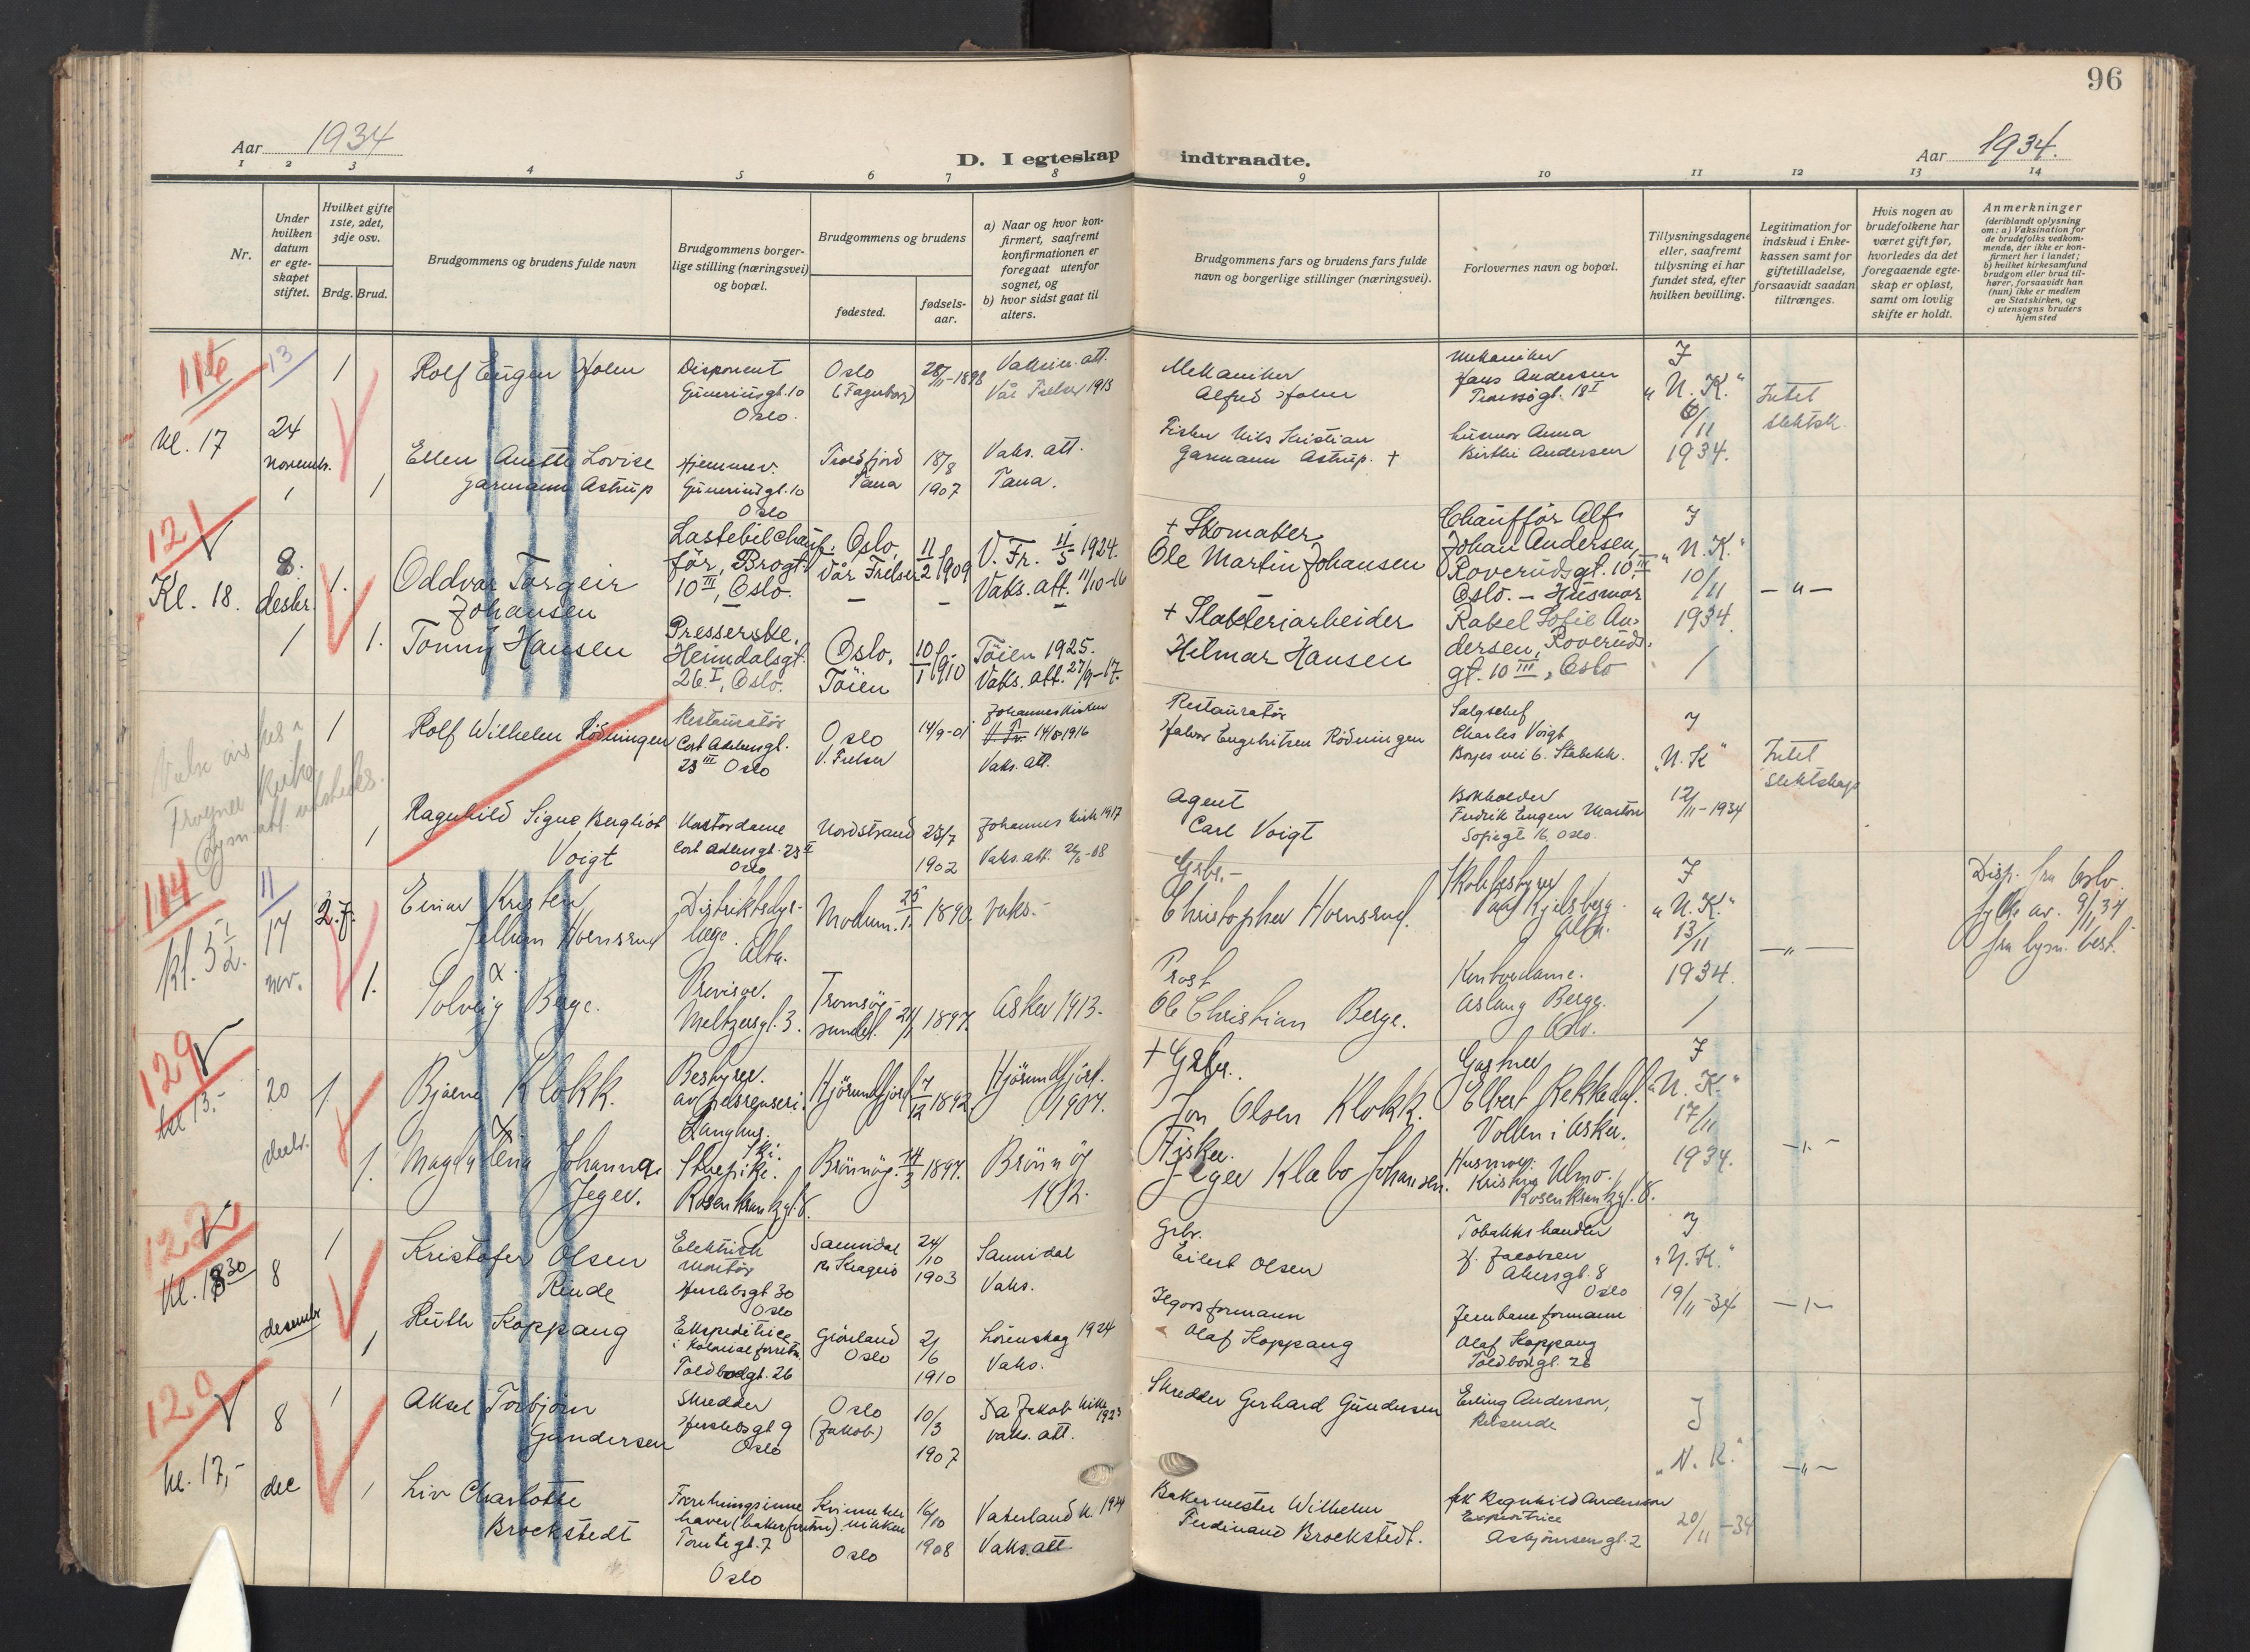 96
Aar 1934
D. I egteskap indtraadte.
Aar 1934.
1 2 3 4 5 6 7 8 9 10 11 12 13 14
Nr.
Under
hvilken
datum
er egte-
skapet
stiftet.
Hvilket gifte
1ste, 2det,
3dje osv.
Brdg. Brud.
Brudgommens og brudens fulde navn
Brudgommens borger-
lige stilling (næringsvei)
og bopæl.
Brudgommens og brudens
fødested.
fødsels-
aar.
a) Naar og hvor kon-
firmert, saafremt
konfirmationen er
foregaat utenfor
sognet, og
b) hvor sidst gaat til
alters.
Brudgommens fars og brudens fars fulde
navn og borgerlige stillinger (næringsvei).
Forlovernes navn og bopæl.
Tillysningsdagene
eller, saafremt
tillysning ei har
fundet sted, efter
hvilken bevilling.
Legitimation for
indskud i Enke-
kassen samt for
giftetilladelse,
forsaavidt saadan
tiltrænges.
Hvis nogen av
brudefolkene har
været gift før,
hvorledes da det
foregaaende egte-
skap er opløst,
samt om lovlig
skifte er holdt.
Anmerkninger
(deriblandt oplysning
om: a) Vaksination for
de brudefolks vedkom-
mende, der ikke er kon-
firmert her i landet;
b) hvilket kirkesamfund
brudgom eller brud til-
hører, forsaavidt han
(hun) ikke er medlem
av Statskirken, og
c) utensogns bruders
hjemsted
116
13
Kl. 17
24
novembr.
1
1
Rolf Eugen Holm
Disponent
Gunerius gt. 10
Oslo.
Oslo
(Fagerborg)
28/11-1898
Vaksin. att.
Vår Frelser 1913
Mekaniker
Alfred Holm
Mekaniker
Hans Andersen
Tromsøgt. 18 I
I
"N. K."
6/11
1934.
Intet
slektsk.
Ellen Anette Lovise
Garmann Astrup
Hjemmev.
Gunerius gt. 10
Oslo
Troldfjord
Tana
18/8
1907
Vaks. att.
Tana.
Fisker Nils Kristian
Garmann Astrup. +
husmor Anna
Birthe Andersen
121
Kl. 18.
8.
desbr.
1.
1.
Oddvar Torgeir
Johansen
Lastebilchauf-
för, Brogt.
10 III, Oslo.
Oslo,
Vår Frelser
11/2 1909
V. Fr. 11/5 1924.
Vaks. att. 11/10-16
+ Skomaker
Ole Martin Johansen
Chaufför Alf
Johan Andersen,
Roverudsgt. 10 III,
Oslo. - Husmor
Rakel Sofie An-
dersen, Roveruds-
gt. 10 III, Oslo
I
"N. K."
10/11
1934.
- " -
Tonny Hansen
Presserske.
Heimdalsgt.
26 I, Oslo.
Oslo,
Töien
10/1 1910
Töien 1925.
Vaks. att. 27/9-17.
+ Slakteriarbeider
Hilmar Hansen
1
1
Rolf Wilhelm Rödningen
Restauratør
Cort Adelersgt.
23 III Oslo
Oslo
V. Frelser
14/9-01
Johanneskirken
1916
Vaks. att.
Restauratør
Halvor Engebritsen Rödningen
Salgschef
Charles Voigt
Borges vei 6. Stabekk.
I
"N. K"
12/11-1934
Intet
slektskap
Frogner Kirke
Ragnhild Signe Bergliot
Voigt
Kontordame
Cort Adelersgt. 23 II
Oslo
Nordstrand
23/7
1902
Johannes kirke 1917
Vaks. att.
Agent
Carl Voigt
Bokholder
Fredrik Eugen
Sofiegt. 16, Oslo.
114
11
kl. 5 1/2.
17
nov.
2. f.
1.
Einar Kristen
Hornsrud
Distriktsdyr-
læge.
Alta.
Modum.
25/1 1890.
vaks.-
Grbr.-
Christopher Hornsrud.
Skolebestyrer
Kjelsberg.
I
"N. K."
13/11
1934.
- " -
Disp. fra Oslo
fylke av. 9/11 34
fra lysn. best.
Solveig Berge.
Provisor.
Meltzersgt. 3.
Tromsøy-
sundet.
1897.
Asker 1913.
Prost
Ole Christian Berge.
Kontordame.
Aslaug Berge.
Oslo.
129
kl 13.-
20
decbr.
1
1.
Bjarne Klokk.
Bestyrer.
av presseri.
Langhus,
Ski.
Hjörundfjord
7/12 1892
Hjörundfjord.
1907.
+ Grbr.
Jon Olsen Klokk.
Gartner
Elbert Rekkedal.
Vollen i Asker.
I
"N. K."
17/11
1934.
- " -
Magdalena Johanna
Jeger.
Stuepike.
Rosenkrantzgt. 8.
Brönnöy.
14/3 1897.
Brönnöy
1912.
Fisker.
Jeger Klabo Johansen.
Husmor.
Kristine Ulmo.
Rosenkrantzgt. 8.
122
Kl. 18 30
8
desember
1
1
Kristofer Olsen
Rinde
Elektrisk
montör
Herslebsgt 30
Oslo
Sannidal
pr Kragerø
24/10
1903
Sannidal
Vaks.
Grbr.
Eilert Olsen
Tobakkshandler
H. Jacobsen
Akersgt. 8
Oslo
I
"N. K."
19/11-34
- " -
Ruth Koppang
Ekspeditrice
i kolonialforretn.
Toldbodgt. 26
Grönland
Oslo
2/6
1910
Lörenskog 1924
Vaks.
formann
Olaf Koppang
Jernbaneformann
Olaf Koppang
Toldbodgt. 26
120
kl. 17,-
8
dec
1
1
Aksel Torbjörn
Gundersen
Skredder
Herslebsgt 9
Oslo
Oslo
(Jakob)
10/3
1907
Jakob kirke
1923
vaks. att.
Skredder Gerhard Gundersen
Erling Anderson,
Reisende
I
"N. K."
20/11-34
- " -
Liv Charlotte
Brockstedt
Forretningsinne-
haver (bakerforretn)
Tomtegt. 7
Oslo
Kvinnekli-
nikken
Oslo
16/10
1908
Vaterland k. 1924
Vaks. att.
Bakermester Wilhelm
Ferdinand Brockstedt.
frk Ragnhild Anderson
Expeditrice
Asbjörnsensgt. 2